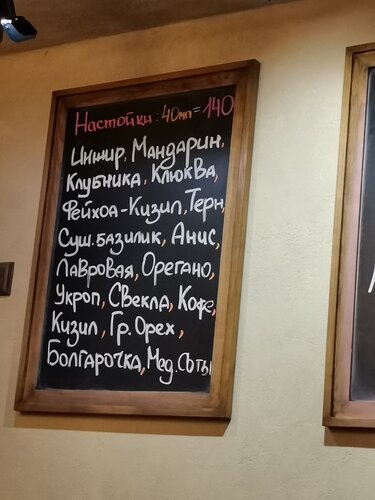 Настойки: 40мл=140
Инжир, Мандарин,
Клубника, Клюква,
Фейхоа-Кизил, Терн,
Суш. базилик, Анис,
Лавровая, Орегано,
Укроп, Свекла, Кофе,
Кизил, Гр. Орех,
Болгарочка, Мед. Соты